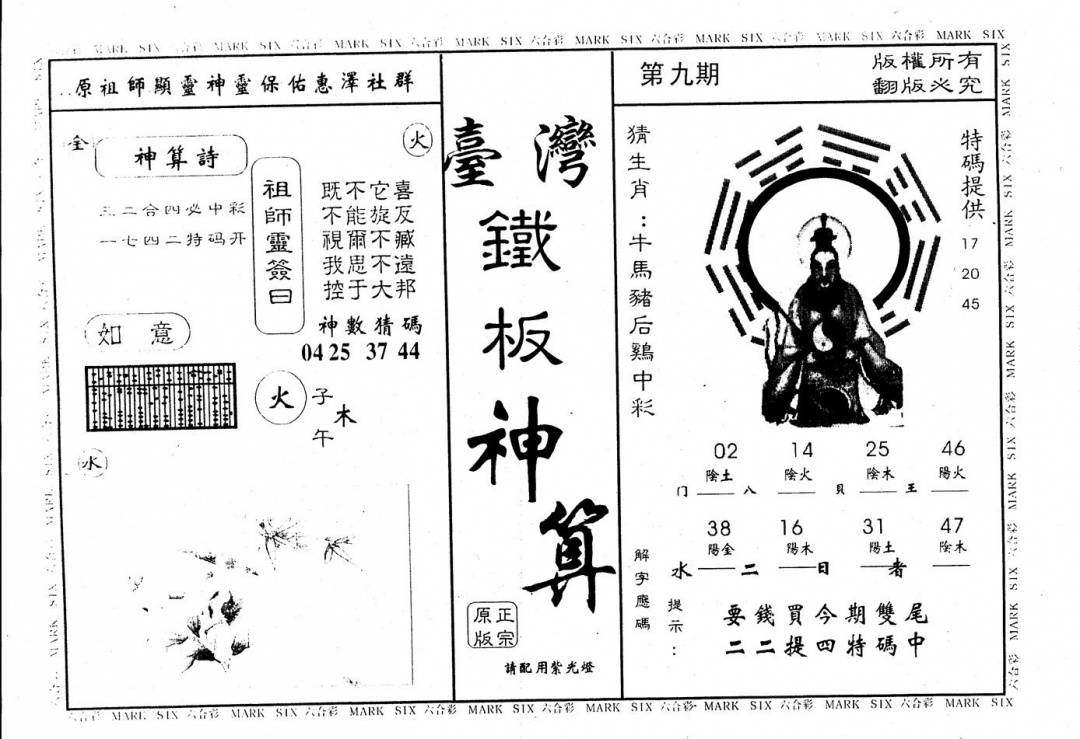 MARK SIX 六合彩 MARK SIX 六合彩 MARK SIX 六合彩 MARK SIX 六合彩 MARK SIX 六合彩 MARK SIX 六合彩 MARK SIX 六合彩 MARK SIX
原祖師顯靈神靈保佑惠澤社群
金
神算詩
火
三二合四必中彩
一七四二特码开
祖師靈簽曰
既不它喜
不能旋反
視爾不臧
我思不遠
控于大邦
神數猜碼
04 25 37 44
如意
火
子
木
午
水
臺灣
鐵
板
神
算
正宗
原版
請配用紫光燈
第九期
版權所有
翻版必究
猜生肖：牛馬豬后鷄中彩
特碼提供
17
20
45
02 14 25 46
陰土 陰火 陰木 陽火
门 八 貝 王
38 16 31 47
陽金 陽木 陽土 陰木
水 二 日 者
解字應碼
提示：
要錢買今期雙尾
二二提四特碼中
MARK SIX 六合彩 MARK SIX 六合彩 MARK SIX 六合彩 MARK SIX 六合彩 MARK SIX 六合彩 MARK SIX 六合彩 MARK SIX 六合彩 MARK SIX